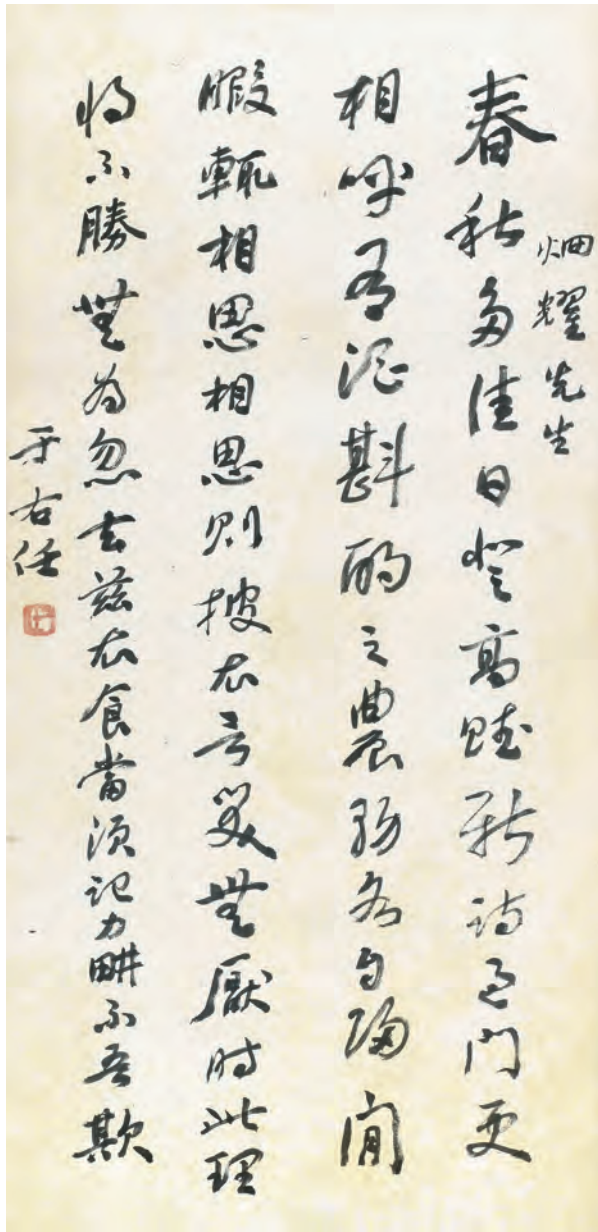 耀先生
春秋多佳日登高賦新詩過門更
相呼有酒斟酌之農務各自歸閒
暇輒相思相思則披衣言笑無厭時此理
將不勝無為忽去茲衣食當須記力畊不吾欺
于右任